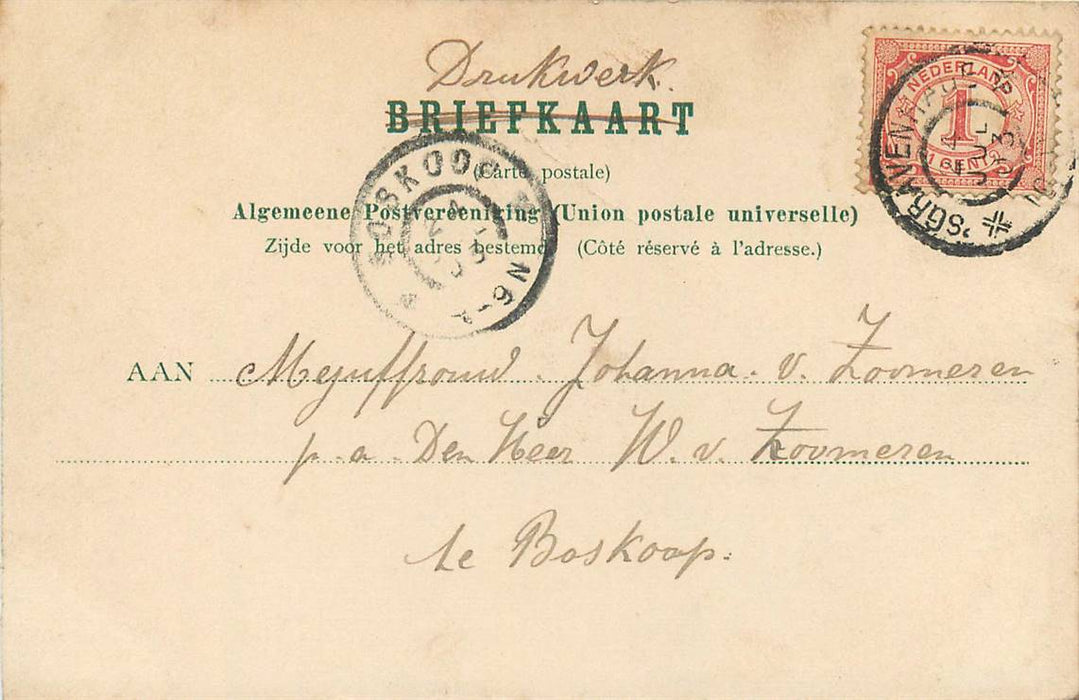 Drukwerk.
BRIEFKAART
(Carte postale)
Algemeene Postvereeniging (Union postale universelle)
Zijde voor het adres bestemd (Côté réservé à l'adresse.)
AAN Mejuffrouw Johanna v. Zoomeren
p. a. Den Heer W. v. Zoomeren
te Boskoop.
NEDERLAND
1
CENT
'SGRAVENHAGE
14
JUL
03
BOSKOOP